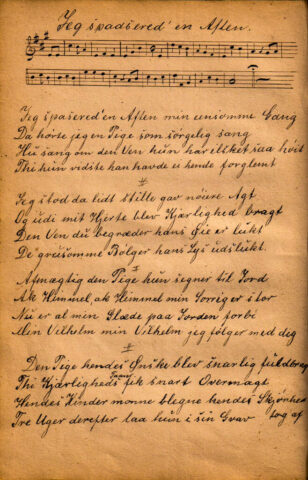 Jeg spadsered' en Aften.
Jeg spasered'en Aften min ensomme Gang
Da hørte jeg en Pige som sørgelig sang
Hu sang om den Ven hun har elsket saa høit
Thi hun vidste han havde ei hende forglemt
Jeg stod da lidt stille gav nöiere Agt
Og udi mit Hjerte blev Kjærlighed bragt
Den Ven du begræder hans Øie er lukt
De grusomme Bölger hans Lys udslukt.
Afmægtig den Pige hun segner til Jord
Ak Himmel ak Himmel min Sorrig er stor
Nu er al min Glæde paa Jorden forbi
Min Vilhelm min Vilhelm jeg følger med dig
Den Pige hendes Ønske blev snarlig fuldbragt
Thi Kjærligheds Taarer fik snart Overmagt
Hendes Kinder monne blegne hendes Skjønhed
Tre Uger derefter laa hun i sin Grav tog af